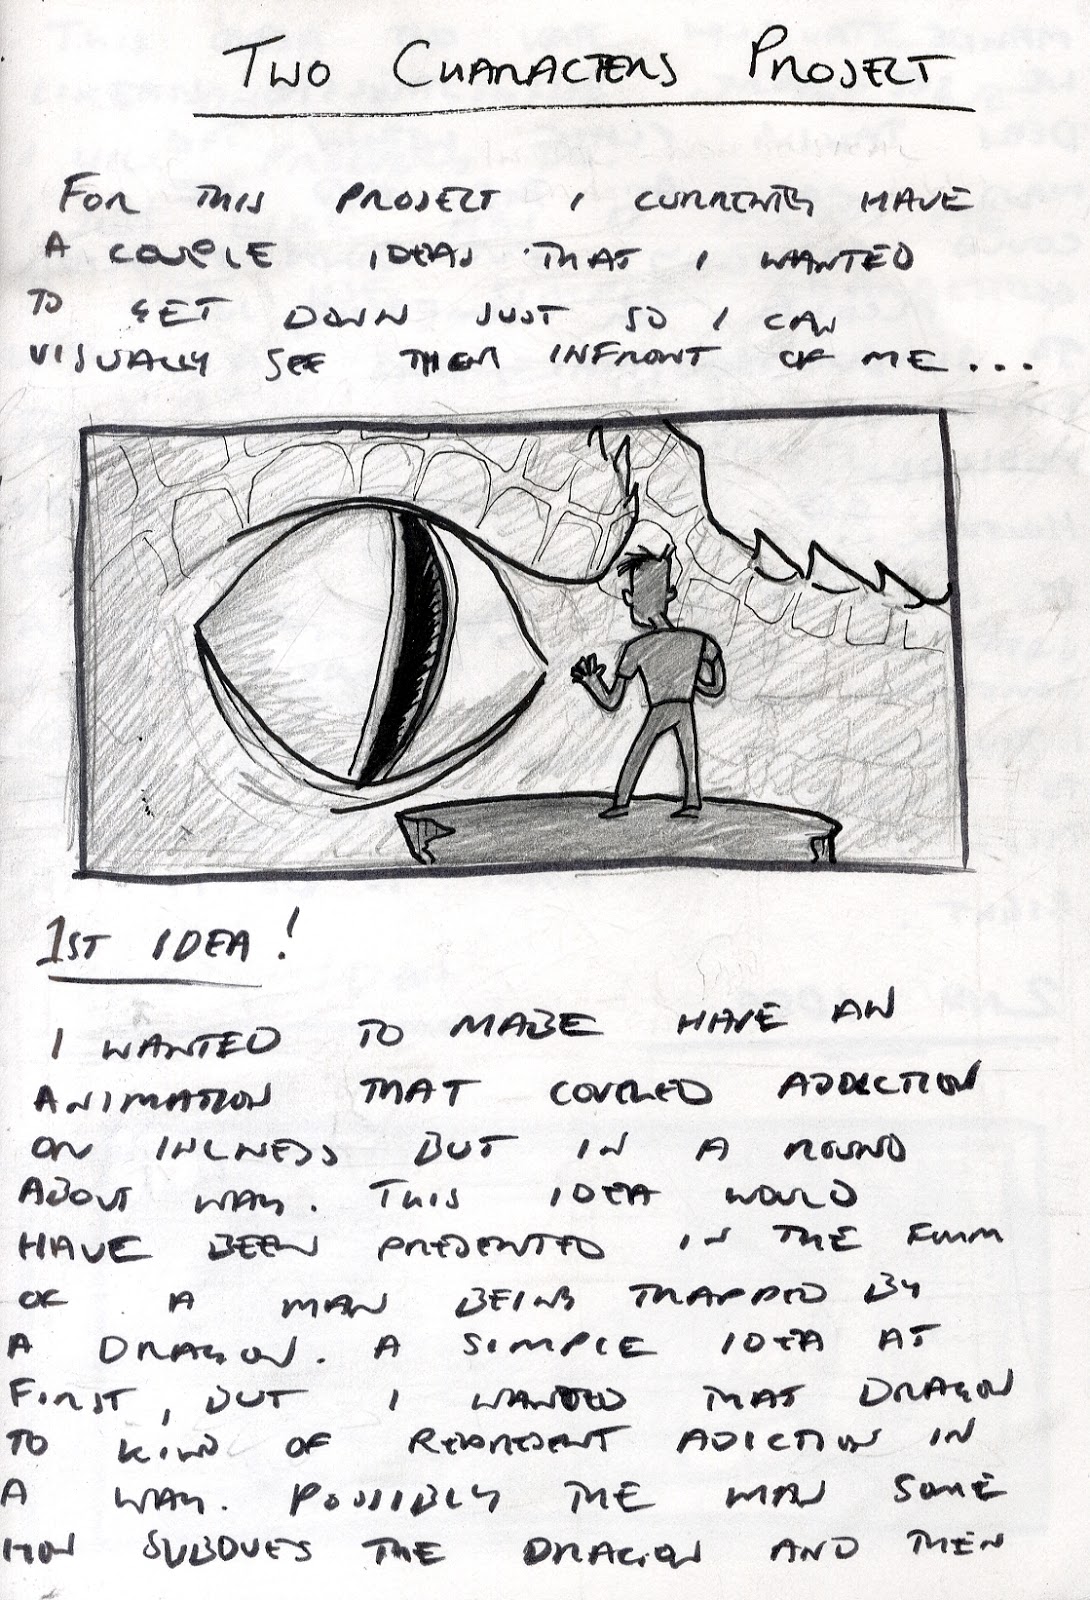 TWO CHARACTERS PROJECT
FOR THIS PROJECT I CURRENTLY HAVE
A COUPLE IDEAS THAT I WANTED
TO GET DOWN JUST SO I CAN
VISUALLY SEE THEM INFRONT OF ME...
1ST IDEA!
I WANTED TO MABE HAVE AN
ANIMATION THAT COVERED ADDICTION
OR ILLNESS BUT IN A ROUND
ABOUT WAY. THIS IDEA WOULD
HAVE BEEN PRESENTED IN THE FORM
OF A MAN BEING TRAPPED BY
A DRAGON. A SIMPLE IDEA AT
FIRST, BUT I WANTED THAT DRAGON
TO KIND OF REPRESENT ADICTION IN
A WAY. POSSIBLY THE MAN SOME
HOW SUBDUES THE DRAGON AND THEN